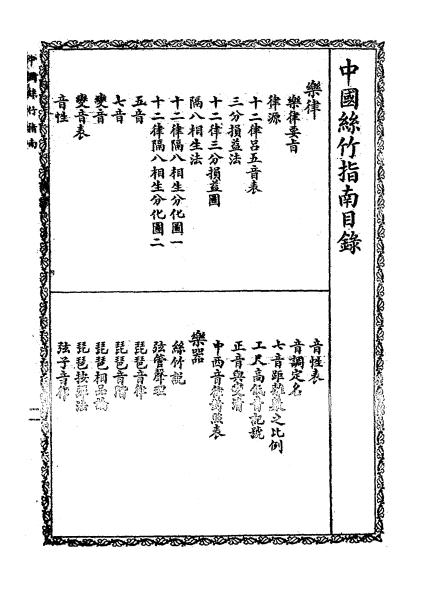 中國絲竹指南目錄
樂律
樂律要旨
律源
十二律呂五音表
三分損益法
十二律三分損益圖
隔八相生法
十二律隔八相生分化圖一
十二律隔八相生分化圖二
五音
七音
變音
變音表
音性
音性表
音調定名
七音距離之比例
工尺高低音記號
正音與變清
中西音律對照表
樂器
絲竹說
弦管聲理
琵琶音律
琵琶音階
琵琶相品
琵琶按法
弦子音律
中國絲竹指南
二